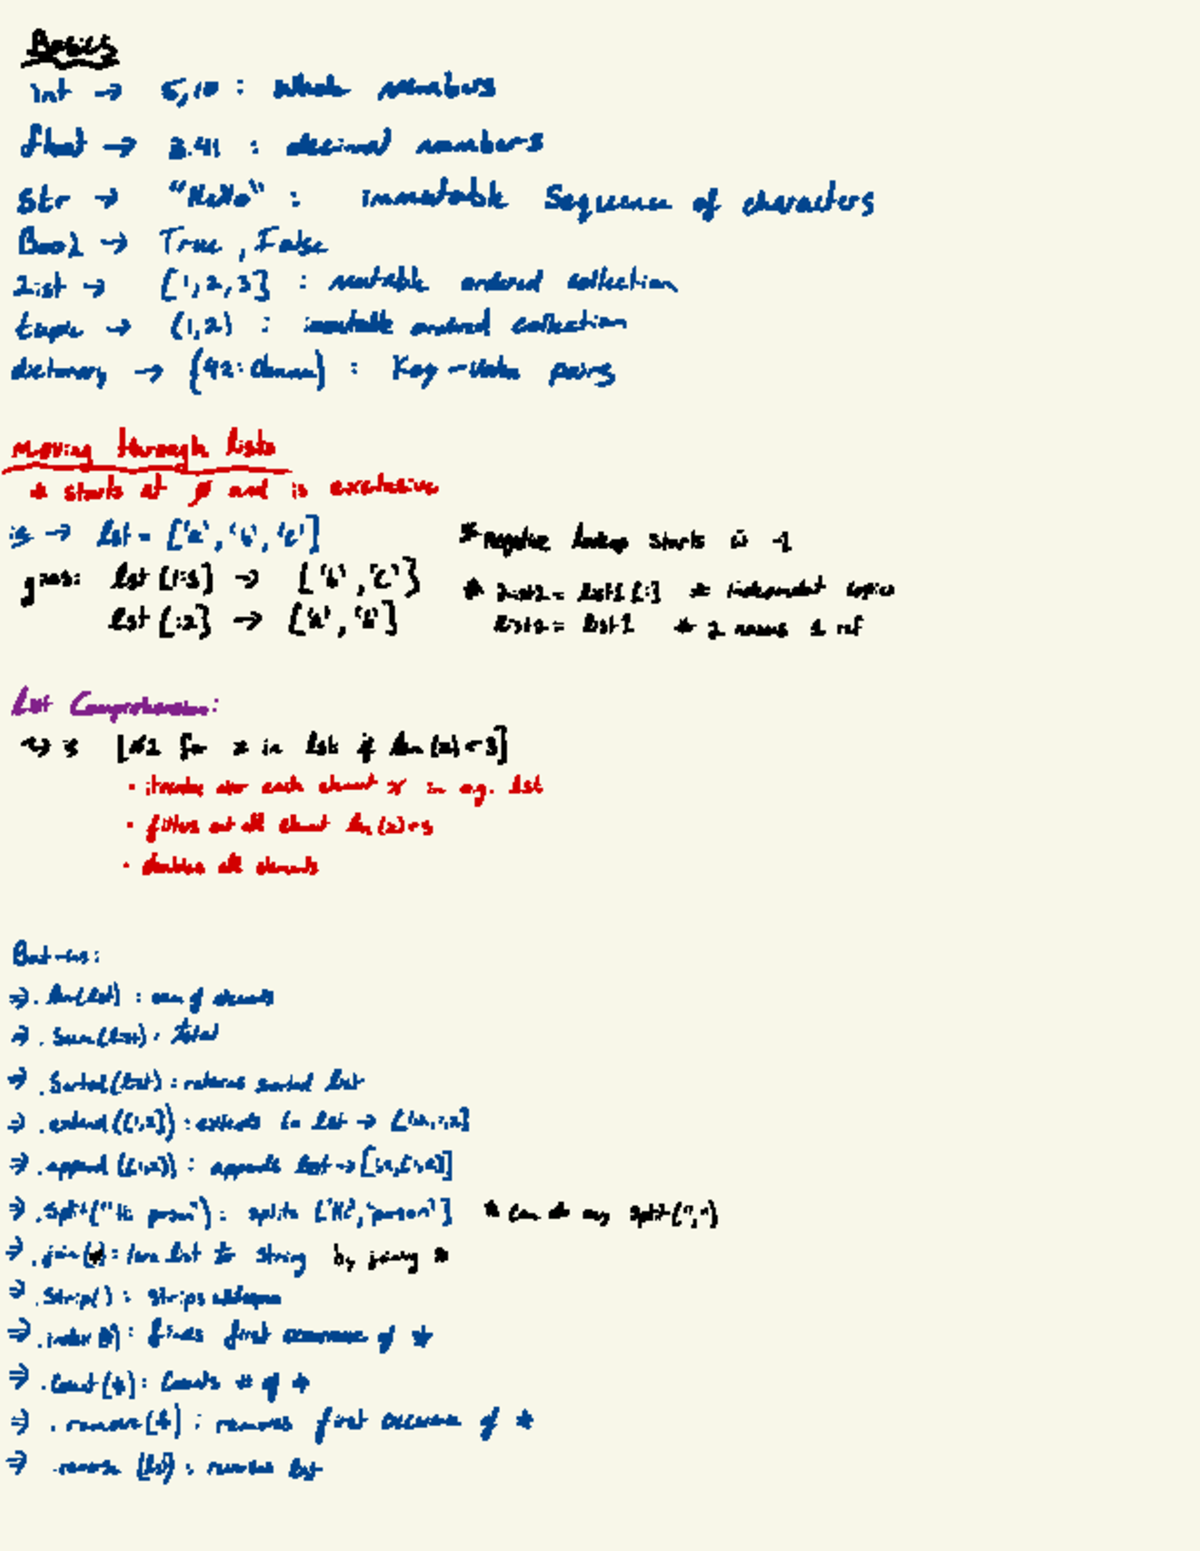 Basics
int → 5,10 : whole numbers
float → 3.41 : decimal numbers
Str → "Hello" : immutable Sequence of characters
Bool → True , False
List → [1,2,3] : mutable ordered collection
tuple → (1,2) : immutable ordered collection
dictionary → {42: } : Key-value pairs
Moving through lists
* starts at 0 and is exclusive
→ lst = ['a', 'b', 'c']
gives: lst [1:3] → ['b', 'c']
lst [:2] → ['a', 'b']
* Negative lookup starts @ -1
* List2 = list1 [:] * independent copies
list2 = list1 * 2 names 1 ref
List Comprehension:
for x in lst if len(x) < 3]
• iterate over each element x in e.g. lst
• filters out all element len(x) < 3
• doubles all elements
Built-ins:
⇒ .len(lst) : num of elements
⇒ .Sum(list) : total
⇒ .Sorted(list) : returns sorted list
⇒ .extend([1,2]) : extends to lst →
⇒ .append([1,2]) : appends list →
⇒ .Split("Hi person") : splits ['Hi', 'person'] * can do any split(",")
⇒ .join(*) : list to string by joining *
⇒ .Strip() : strips whitespace
⇒ .index(*) : finds first occurrence of *
⇒ .Count(*) : Counts # of *
⇒ .remove(*) : removes first occurrence of *
⇒ .reverse (lst) : reverses list